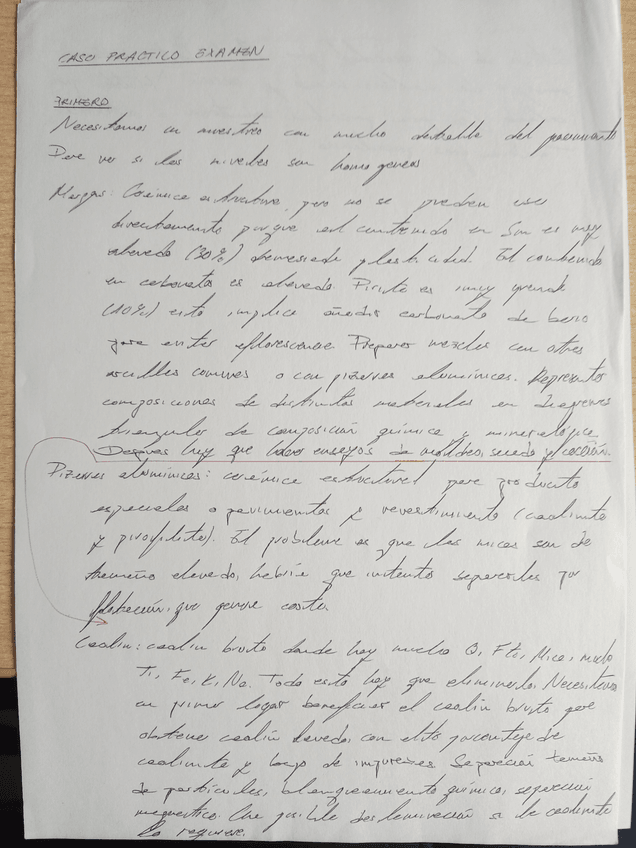 CASO PRACTICO EXAMEN
PRIMERO
Necesitamos un muestreo con mucho detalle del yacimiento
Para ver si los niveles son homogeneos
Margas: Cerámica estructural, pero no se pueden usar
directamente porque el contenido en Sm es muy
elevado (30%) demasiada plasticidad. El contenido
en carbonatos es elevado. Pirita es muy grande
(10%) esto implica añadir carbonato de bario
para evitar eflorescencia. Preparar mezclas con otras
arcillas comunes o con pizarras alumínicas. Representar
composiciones de distintos materiales en diagramas
triangulares de composición química y mineralógica
Después hay que hacer ensayos de moldeo, secado y cocción.
Pizarras alumínicas: cerámica estructural para producto
especiales o pavimentos y revestimiento (caolinita
y pirofilita). El problema es que las micas son de
tamaño elevado, habría que intentar separarlas por
flotación, que genere costes.
Caolin: caolin bruto donde hay mucho Q, Fto, Mica, mucho
Ti, Fe, K, Na. Todo esto hay que eliminarlo. Necesitamos
en primer lugar beneficiar el caolin bruto para
obtener caolin lavado, con alto porcentaje de
caolinita y bajo de impurezas. Separación tamaño
de partículas, blanqueamiento químico, separación
magnetica. Una posible deslaminación si la caolinita
lo requiere.